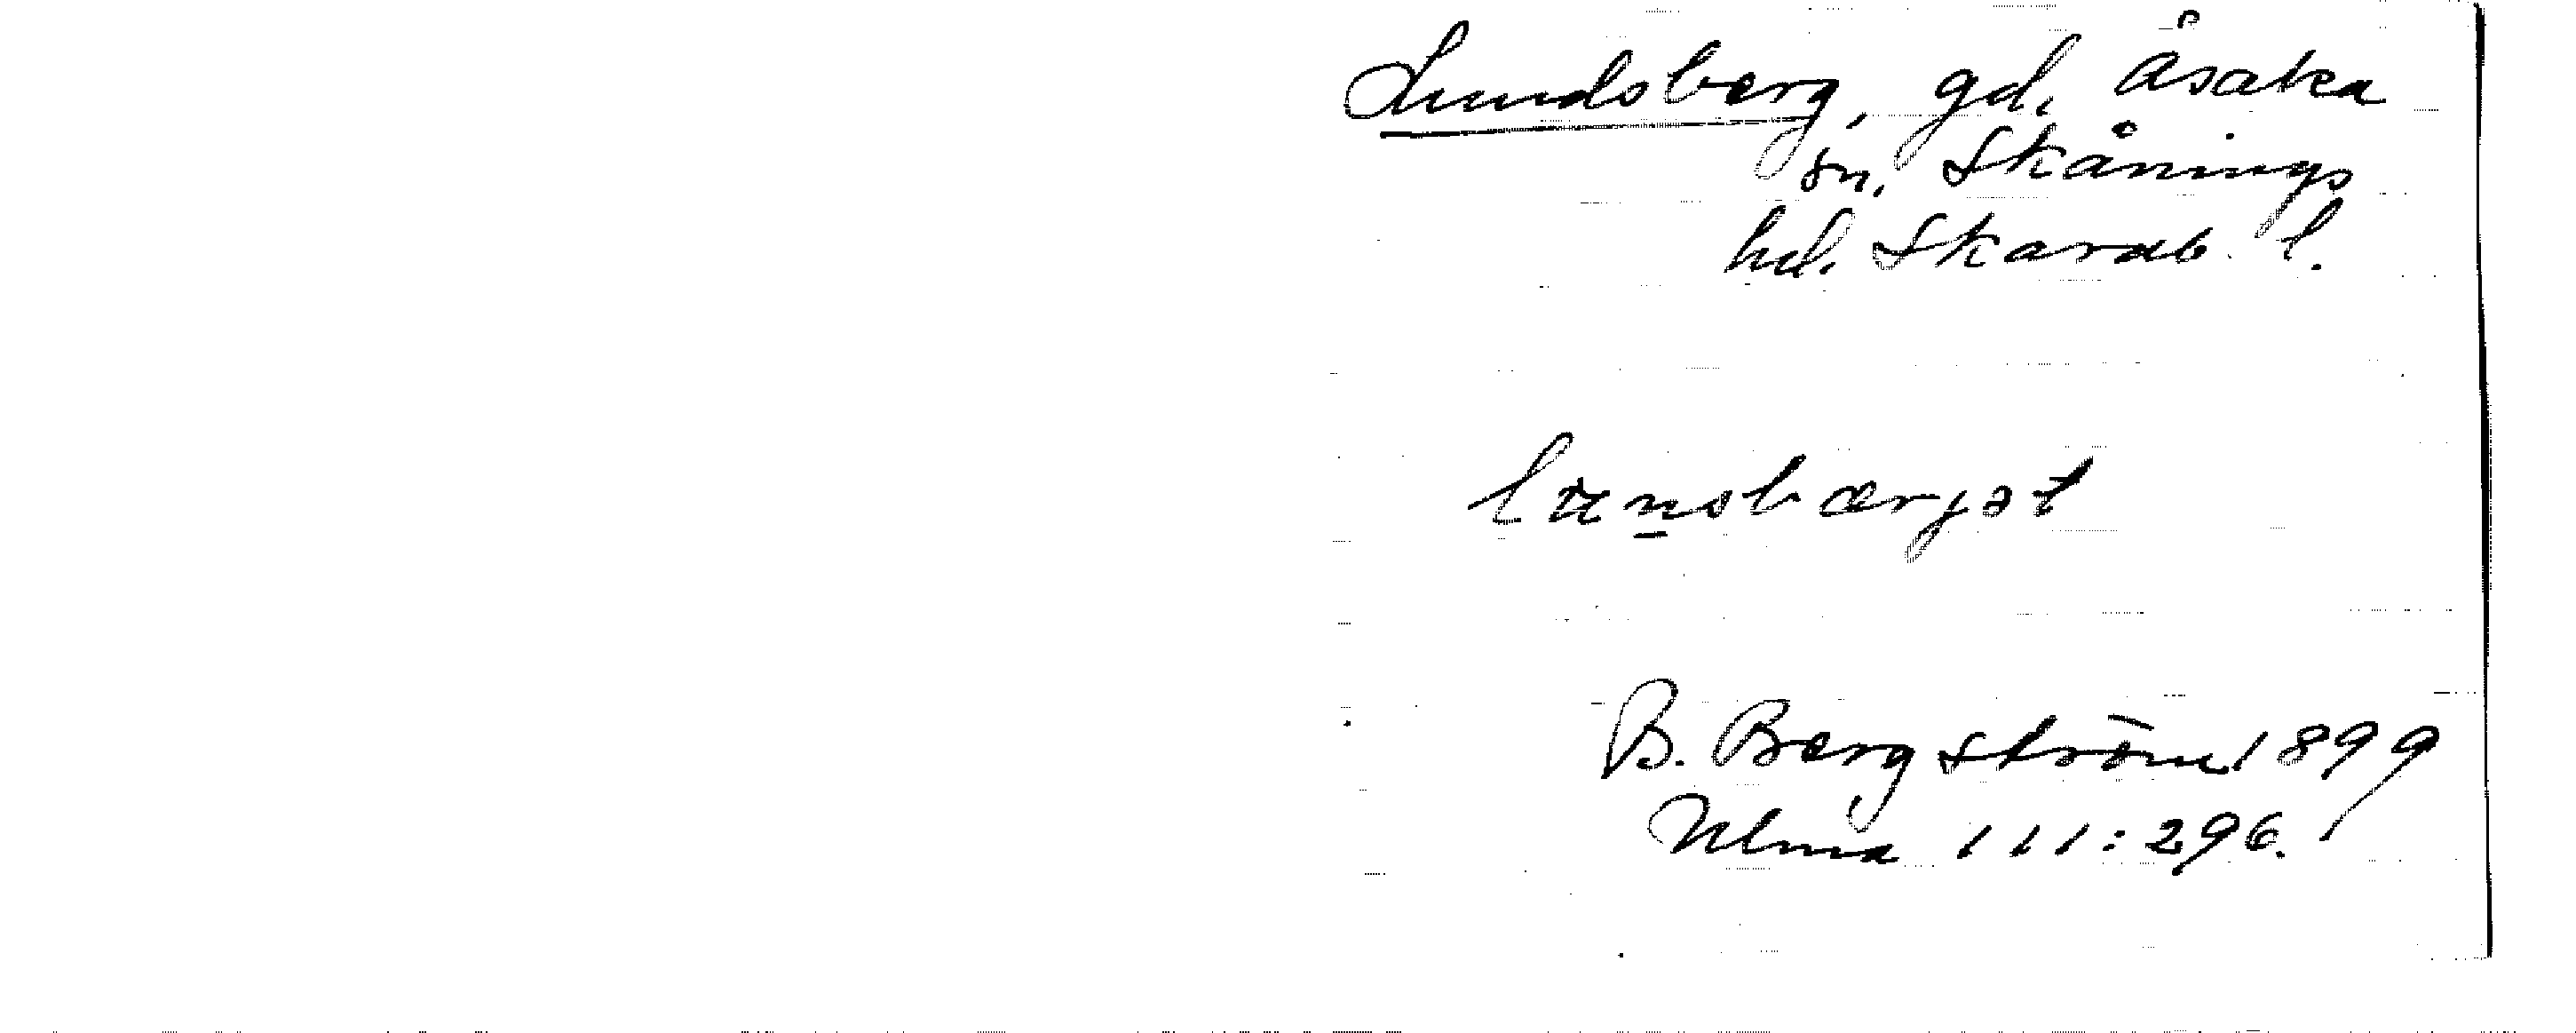 Lundsberg, gd, Åsaka
sn, Skånings
hd. Skarab. l.
B. Bergström 1899
Ulma 111:296.